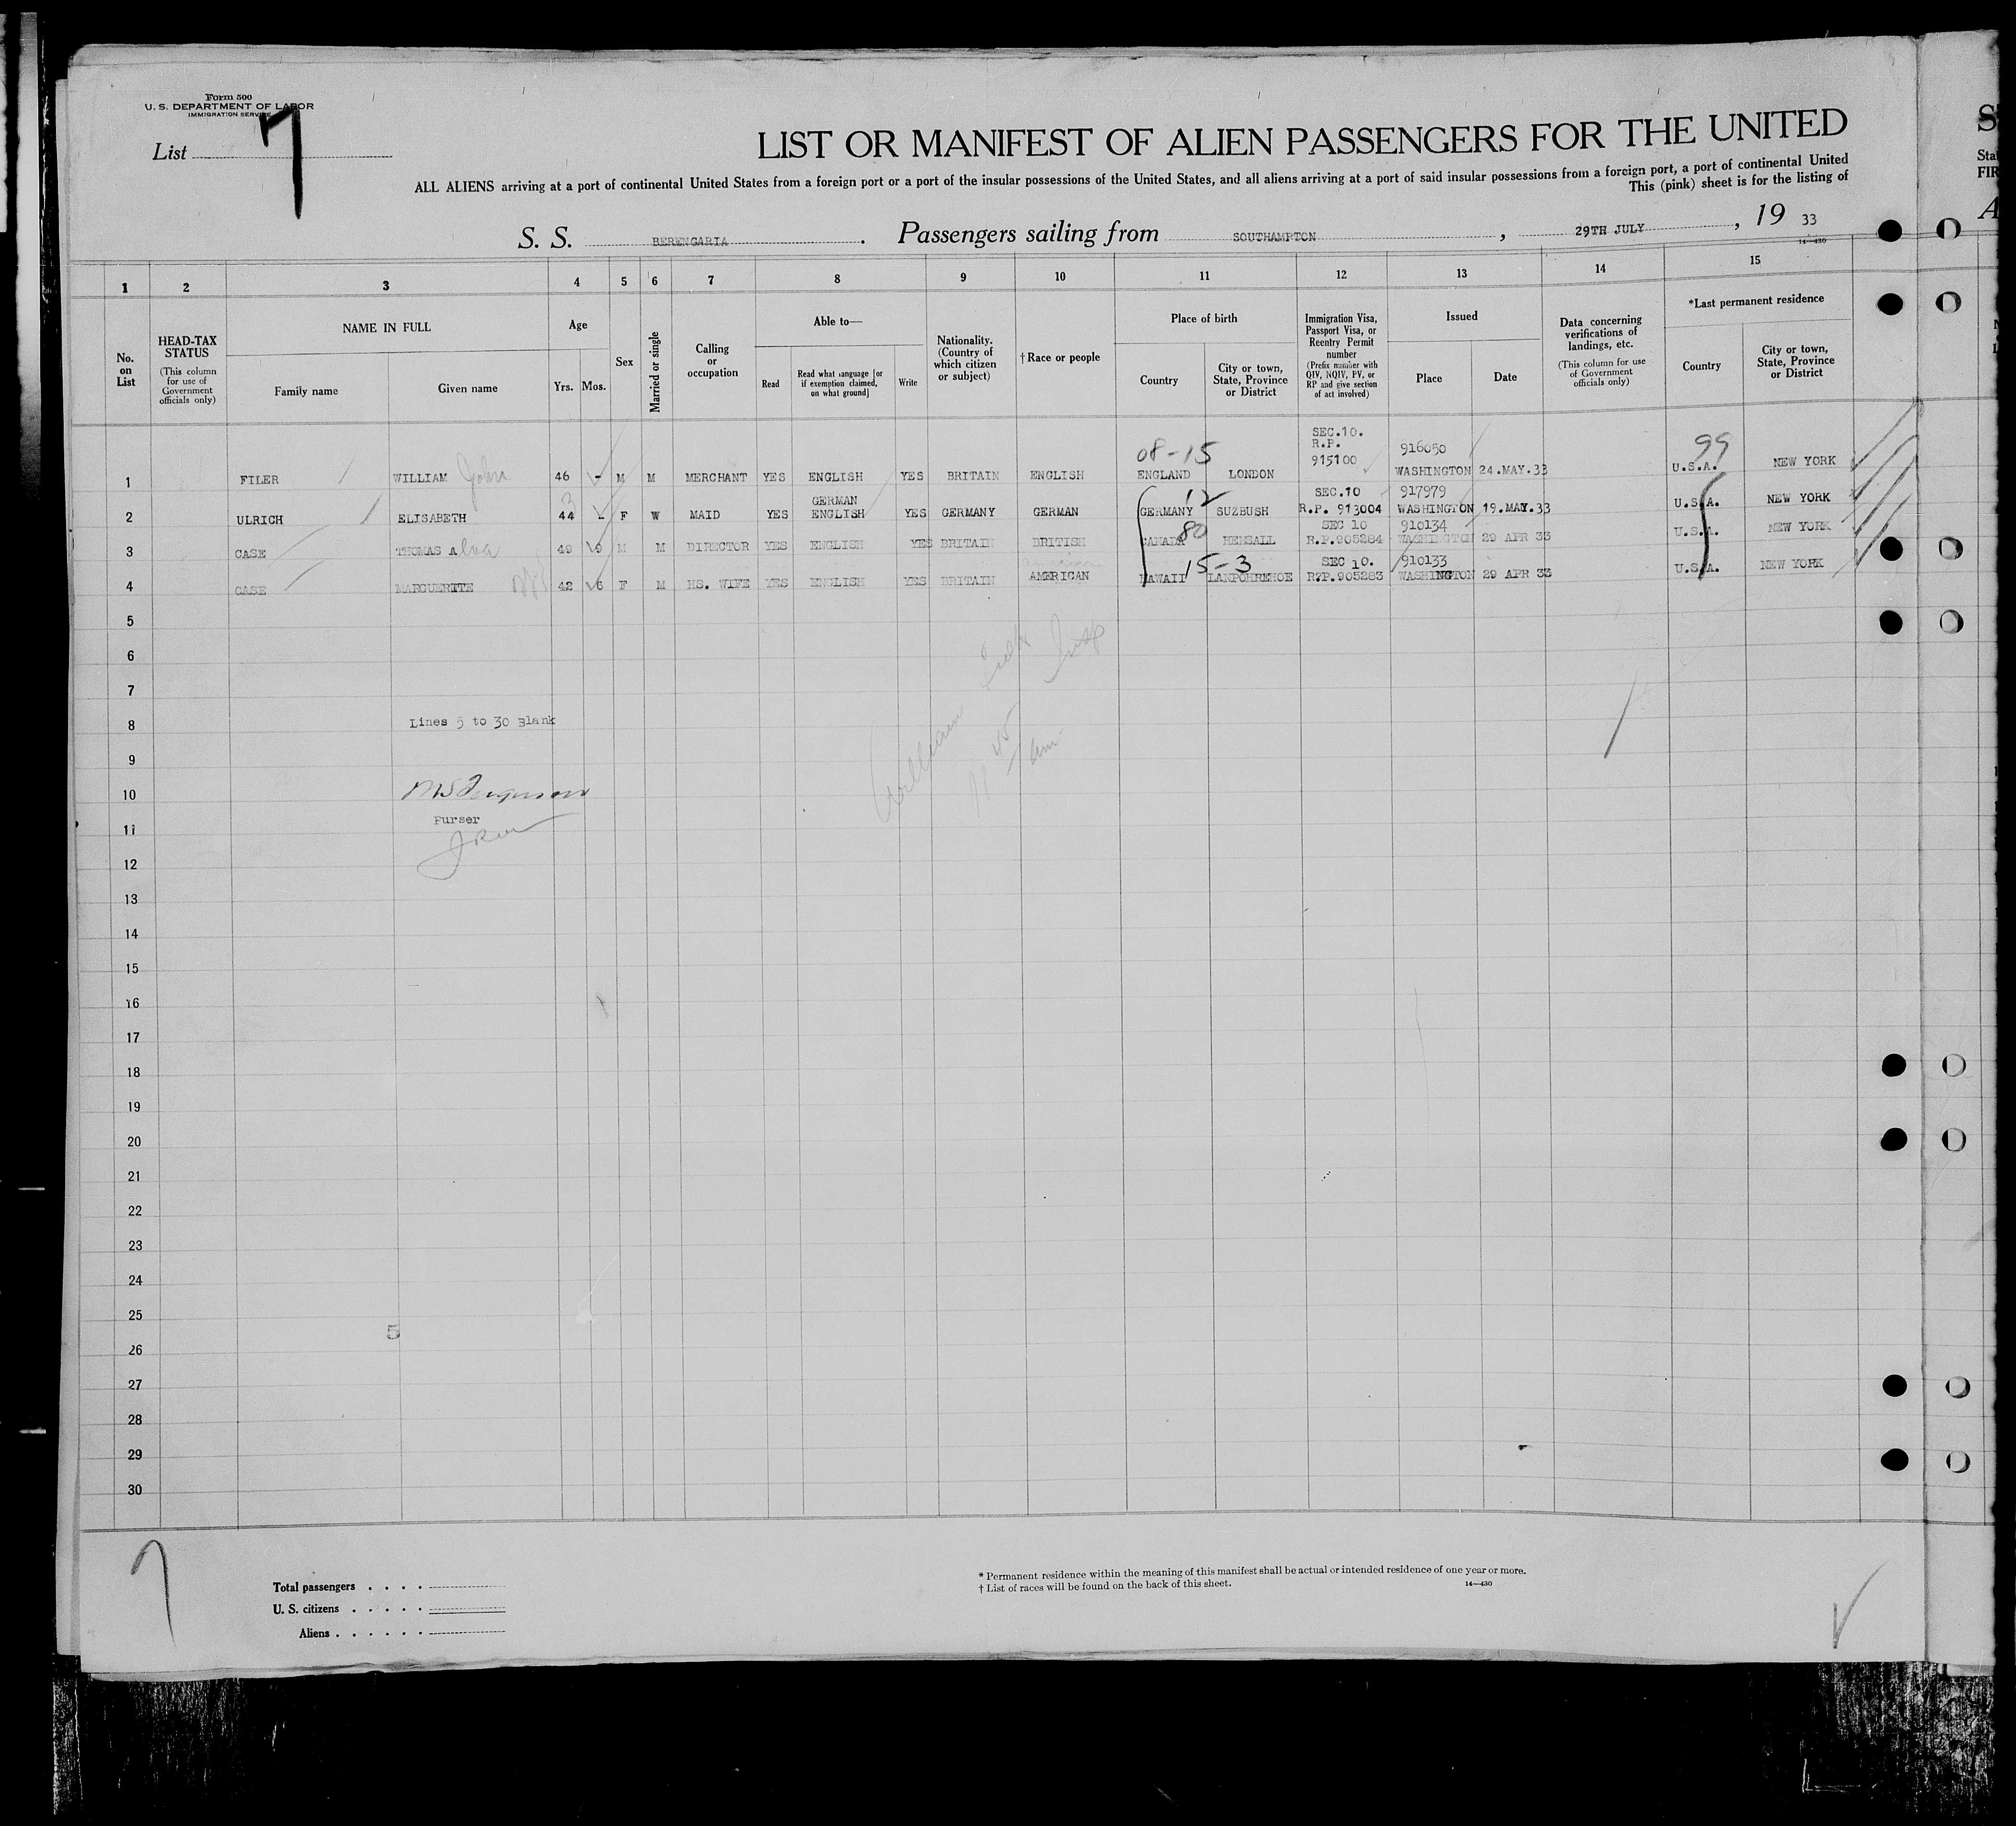 Form 500
U. S. DEPARTMENT OF LABOR
IMMIGRATION SERVICE
List 7
LIST OR MANIFEST OF ALIEN PASSENGERS FOR THE UNITED
ALL ALIENS arriving at a port of continental United States from a foreign port or a port of the insular possessions of the United States, and all aliens arriving at a port of said insular possessions from a foreign port, a port of continental United
This (pink) sheet is for the listing of
S. S. BERENGARIA. Passengers sailing from SOUTHAMPTON, 29TH JULY, 19 33
14—430
1 2 3 4 5 6 7 8 9 10 11 12 13 14 15
No. on List
HEAD-TAX STATUS
(This column for use of Government officials only)
NAME IN FULL
Family name Given name
Age
Yrs. Mos.
Sex
Married or single
Calling or occupation
Able to—
Read
Read what language [or if exemption claimed, on what ground]
Write
Nationality. (Country of which citizen or subject)
†Race or people
Place of birth
Country
City or town, State, Province or District
Immigration Visa, Passport Visa, or Reentry Permit number
(Prefix number with QIV, NQIV, PV, or RP and give section of act involved)
Issued
Place Date
Data concerning verifications of landings, etc.
(This column for use of Government officials only)
*Last permanent residence
Country
City or town, State, Province or District
08-15 SEC.10. R.P. 916050 99
1 FILER WILLIAM John 46 - M M MERCHANT YES ENGLISH YES BRITAIN ENGLISH ENGLAND LONDON 915100 WASHINGTON 24.MAY.33 U.S.A. NEW YORK
3 GERMAN 12 SEC.10 917979
2 ULRICH ELISABETH 44 - F W MAID YES ENGLISH YES GERMANY GERMAN GERMANY SUZBUSH R.P. 913004 WASHINGTON 19.MAY.33 U.S.A. NEW YORK
80 SEC 10 910134
3 CASE THOMAS Alva 49 9 M M DIRECTOR YES ENGLISH YES BRITAIN BRITISH CANADA HENSALL R.P.905284 WASHINGTON 29 APR 33 U.S.A. NEW YORK
15-3 SEC 10. 910133
4 CASE MARGUERITE 42 6 F M HS. WIFE YES ENGLISH YES BRITAIN AMERICAN HAWAII R.P.905283 WASHINGTON 29 APR 33 U.S.A. NEW YORK
5
6
7
8 Lines 5 to 30 Blank
9
10
Purser
11
12
13
14
15
16
17
18
19
20
21
22
23
24
25
5
26
27
28
29
30
7
Total passengers
U. S. citizens
Aliens
* Permanent residence within the meaning of this manifest shall be actual or intended residence of one year or more.
† List of races will be found on the back of this sheet.
14—430